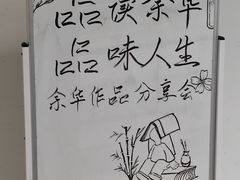 品读余华
品味人生
余华作品分享会